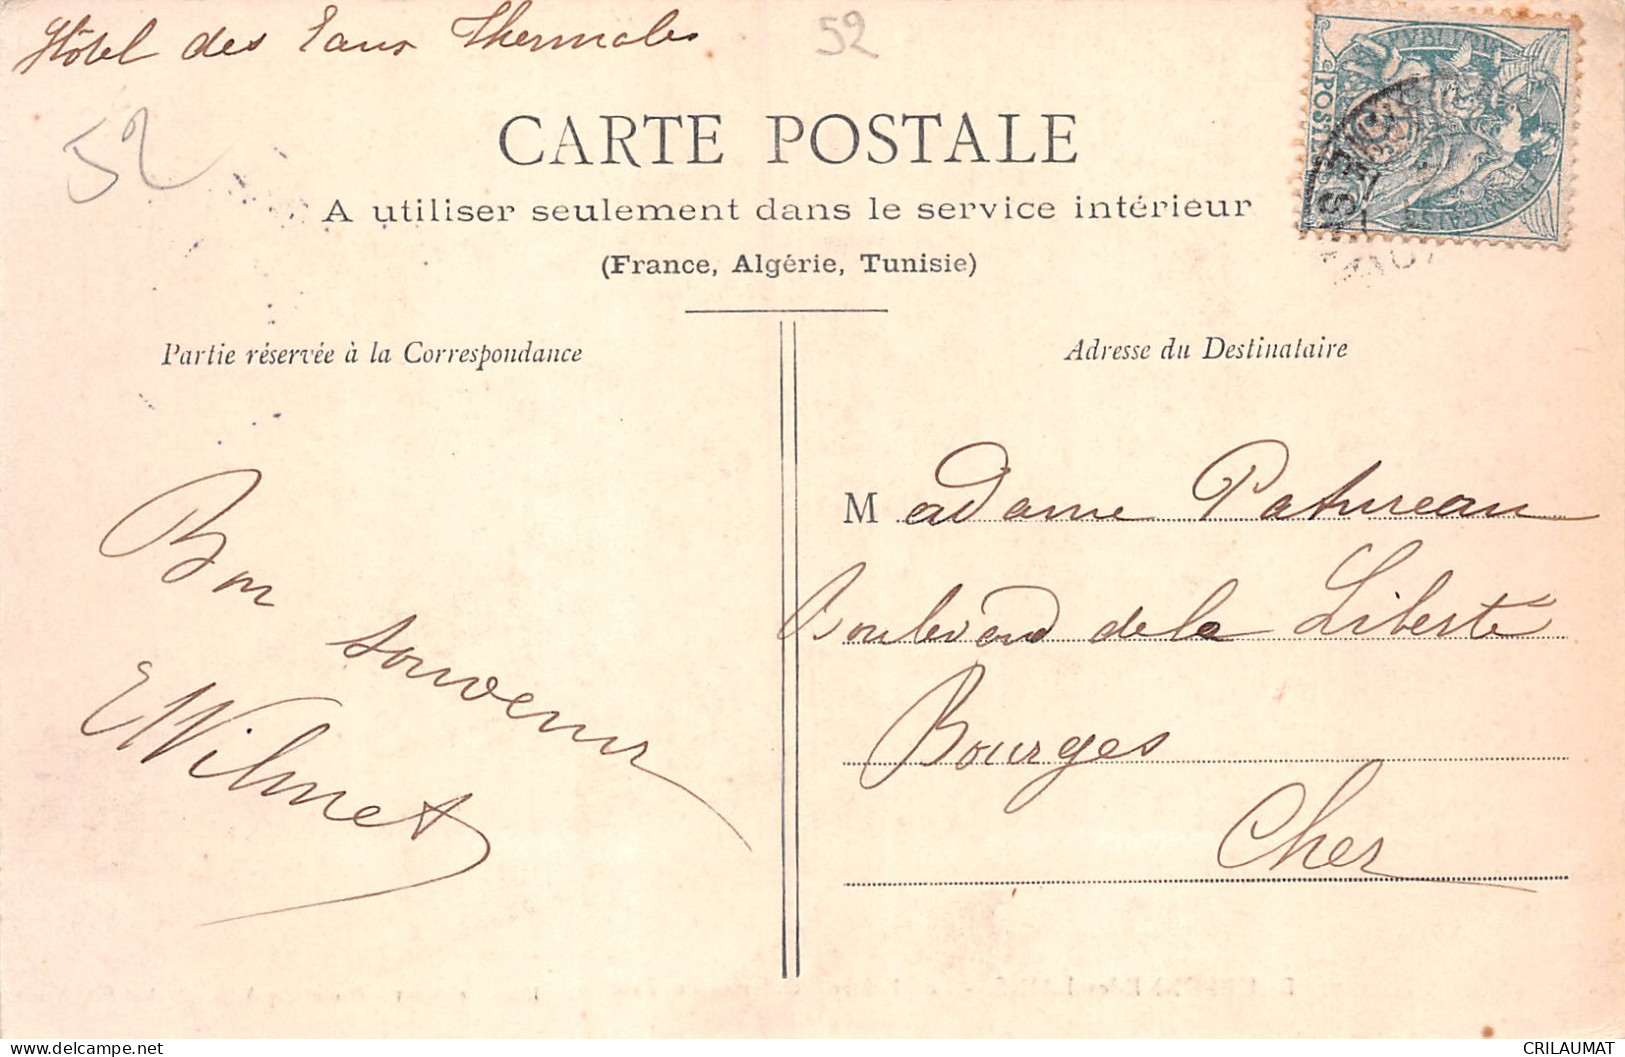 Hôtel des Eaux Thermales
52
52
CARTE POSTALE
A utiliser seulement dans le service intérieur
(France, Algérie, Tunisie)
Partie réservée à la Correspondance
Adresse du Destinataire
Bon
souvenir
EWilmet
Madame Patureau
Boulevard de la Liberté
Bourges
Cher
POST
delcampe.net
CRILAUMAT